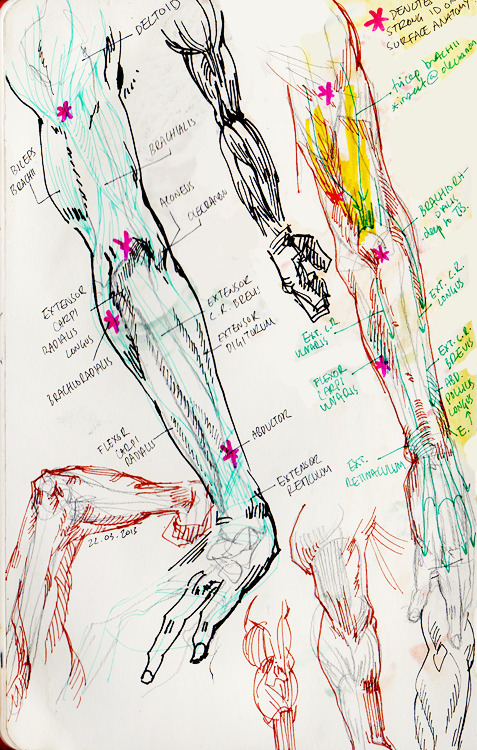 DELTOID
BICEPS
BRACHII
BRACHIALIS
ACONEUS
OLECRANON
EXTENSOR
CARPI
RADIALIS
LONGUS
BRACHIORADIALIS
EXTENSOR
C.R. BREVIS
EXTENSOR
DIGITORUM
FLEXOR
CARPI
RADIALIS
ABDUCTOR
EXTENSOR
RETICULUM
22.03.2013
DENOTES
STRONG ID OF
SURFACE ANATOMY
tricep BRACHII
*insert @ olecranon
BRACHIORA-
DIALIS
deep to
EXT. C.R.
LONGUS
EXT. C.R.
ULNARIS
FLEXOR
CARPI
ULNARIS
EXT. C.R.
BREVIS
ABD.
POLLICUS
LONGUS
E.
EXT.
RETINACULUM